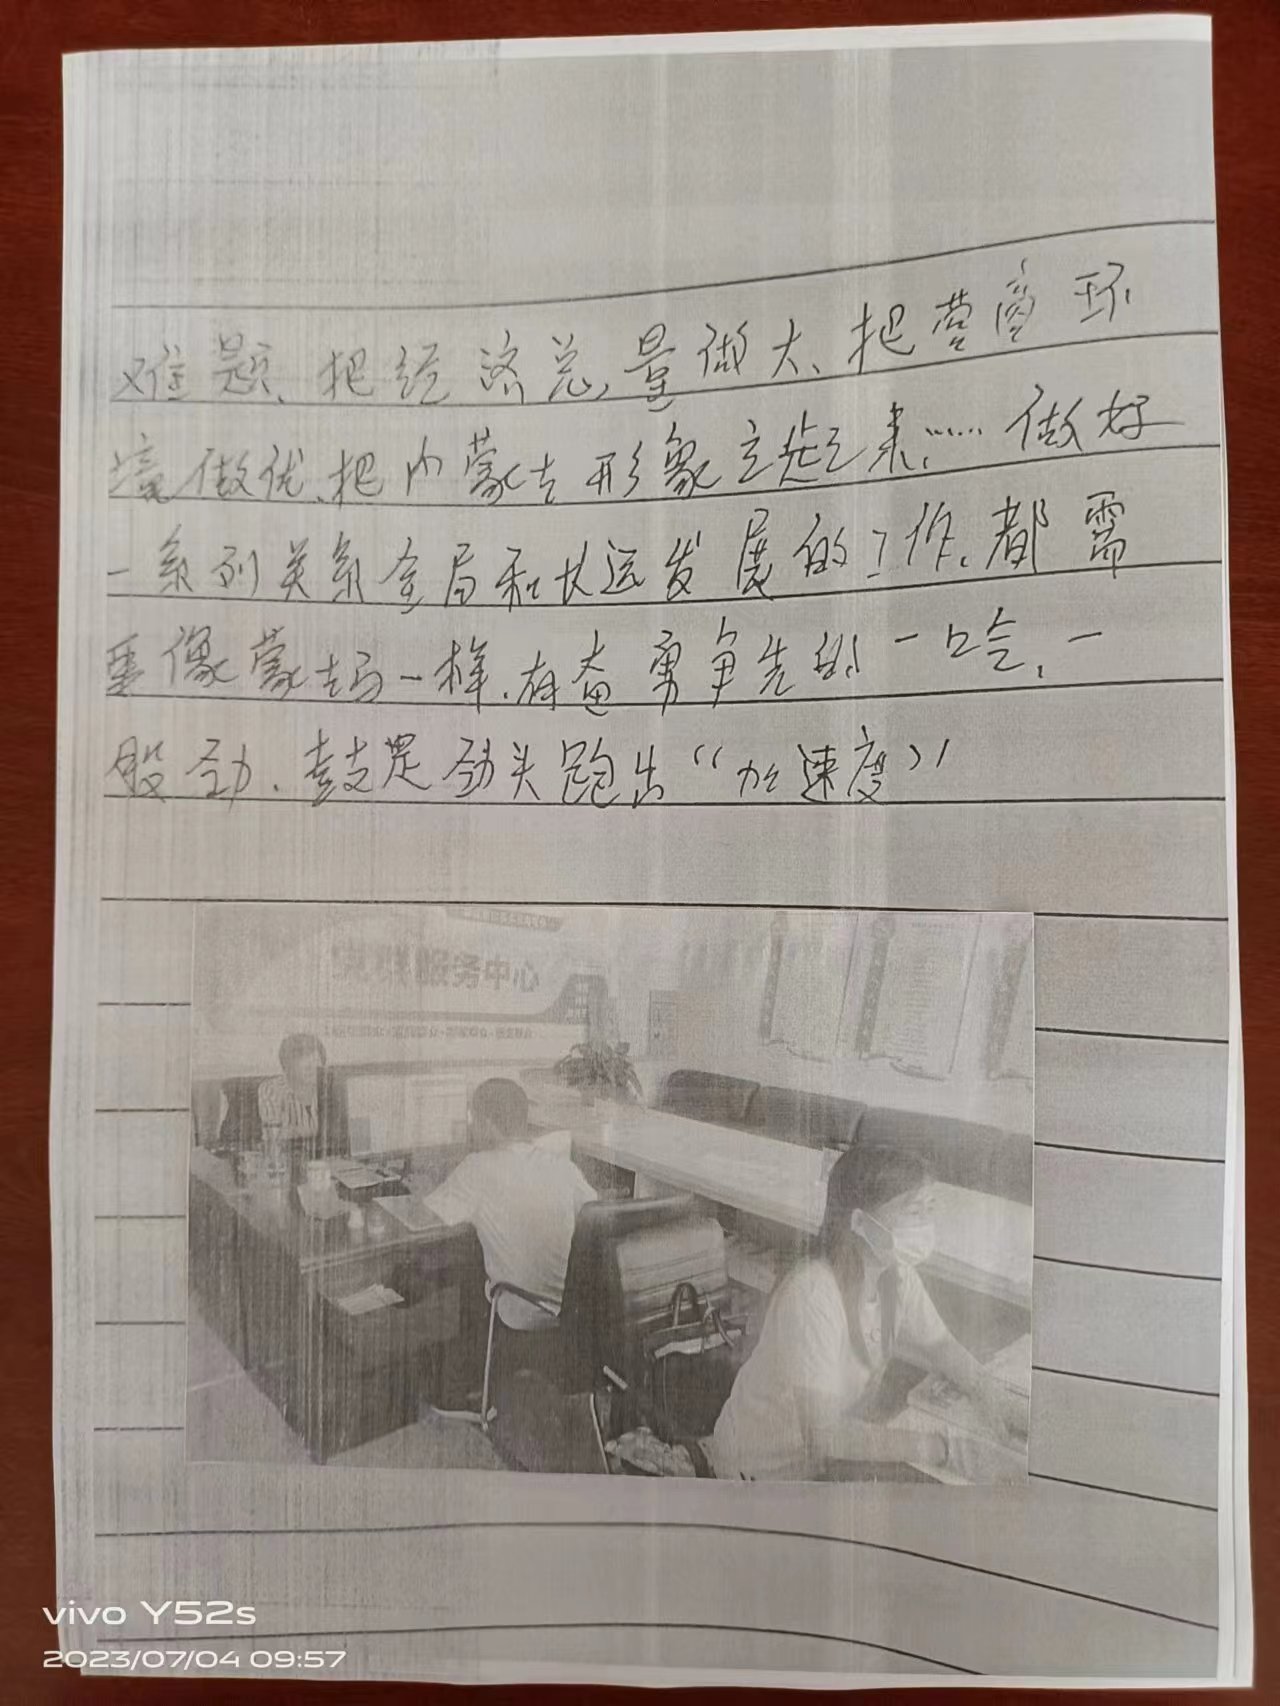 难题、把经济总量做大、把营商环
境做优、把内蒙古形象立起来……做好
一系列关系全局和长远发展的工作,都需
要像蒙古马一样,有奋勇争先的一口气,一
股劲,鼓足劲头跑出“加速度”
党群服务中心
vivo Y52s
2023/07/04 09:57